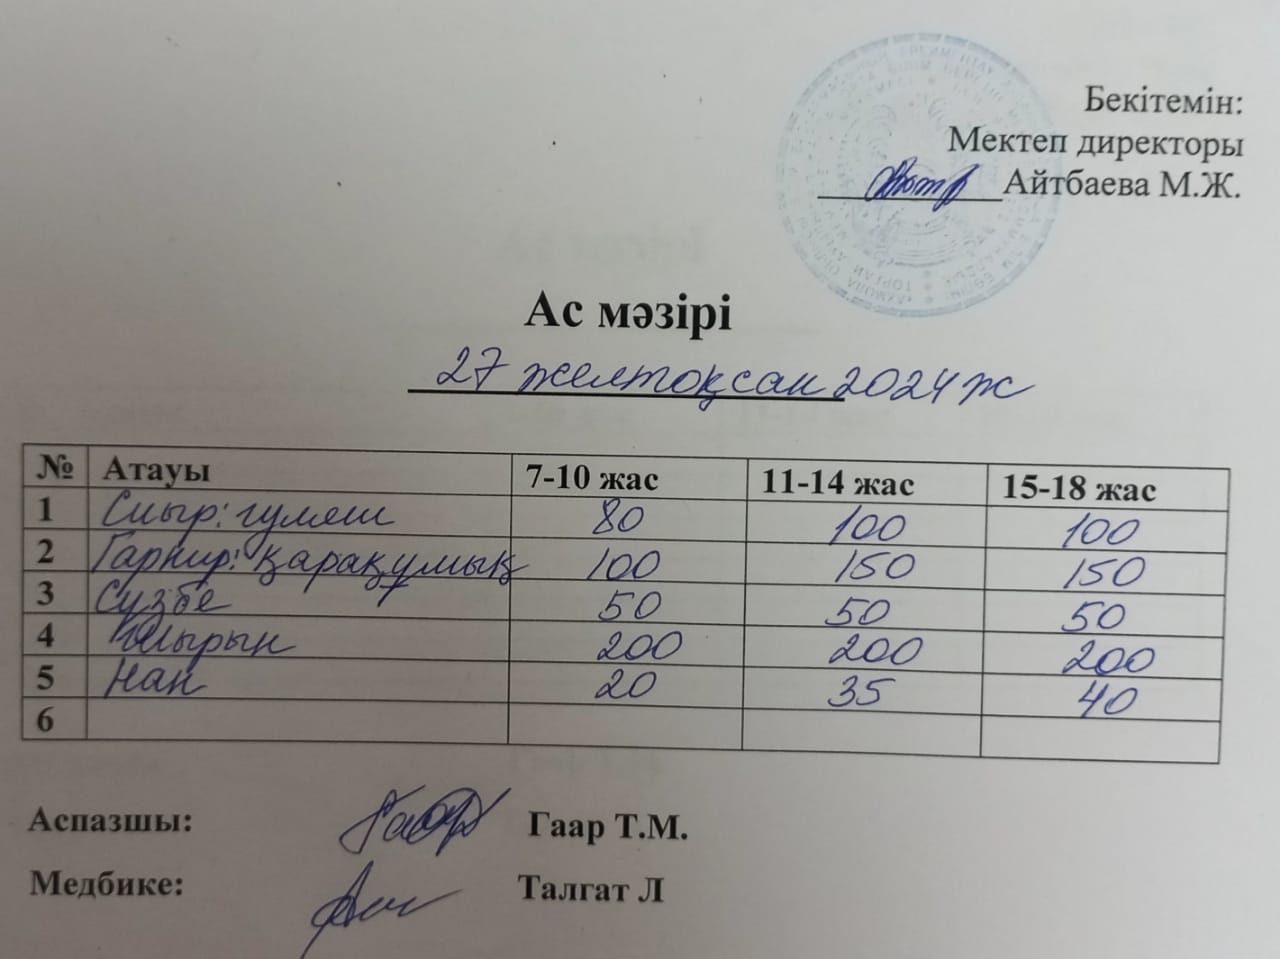 Бекітемін:
Мектеп директоры
Айтбаева М.Ж.
Ас мәзірі
27 желтоқсан 2024 ж
№ Атауы 7-10 жас 11-14 жас 15-18 жас
1 Сиыр: гуляш 80 100 100
2 Гарнир: қарақұмық 100 150 150
3 Сүзбе 50 50 50
4 Шырын 200 200 200
5 Нан 20 35 40
6
Аспазшы: Гаар Т.М.
Медбике: Талгат Л